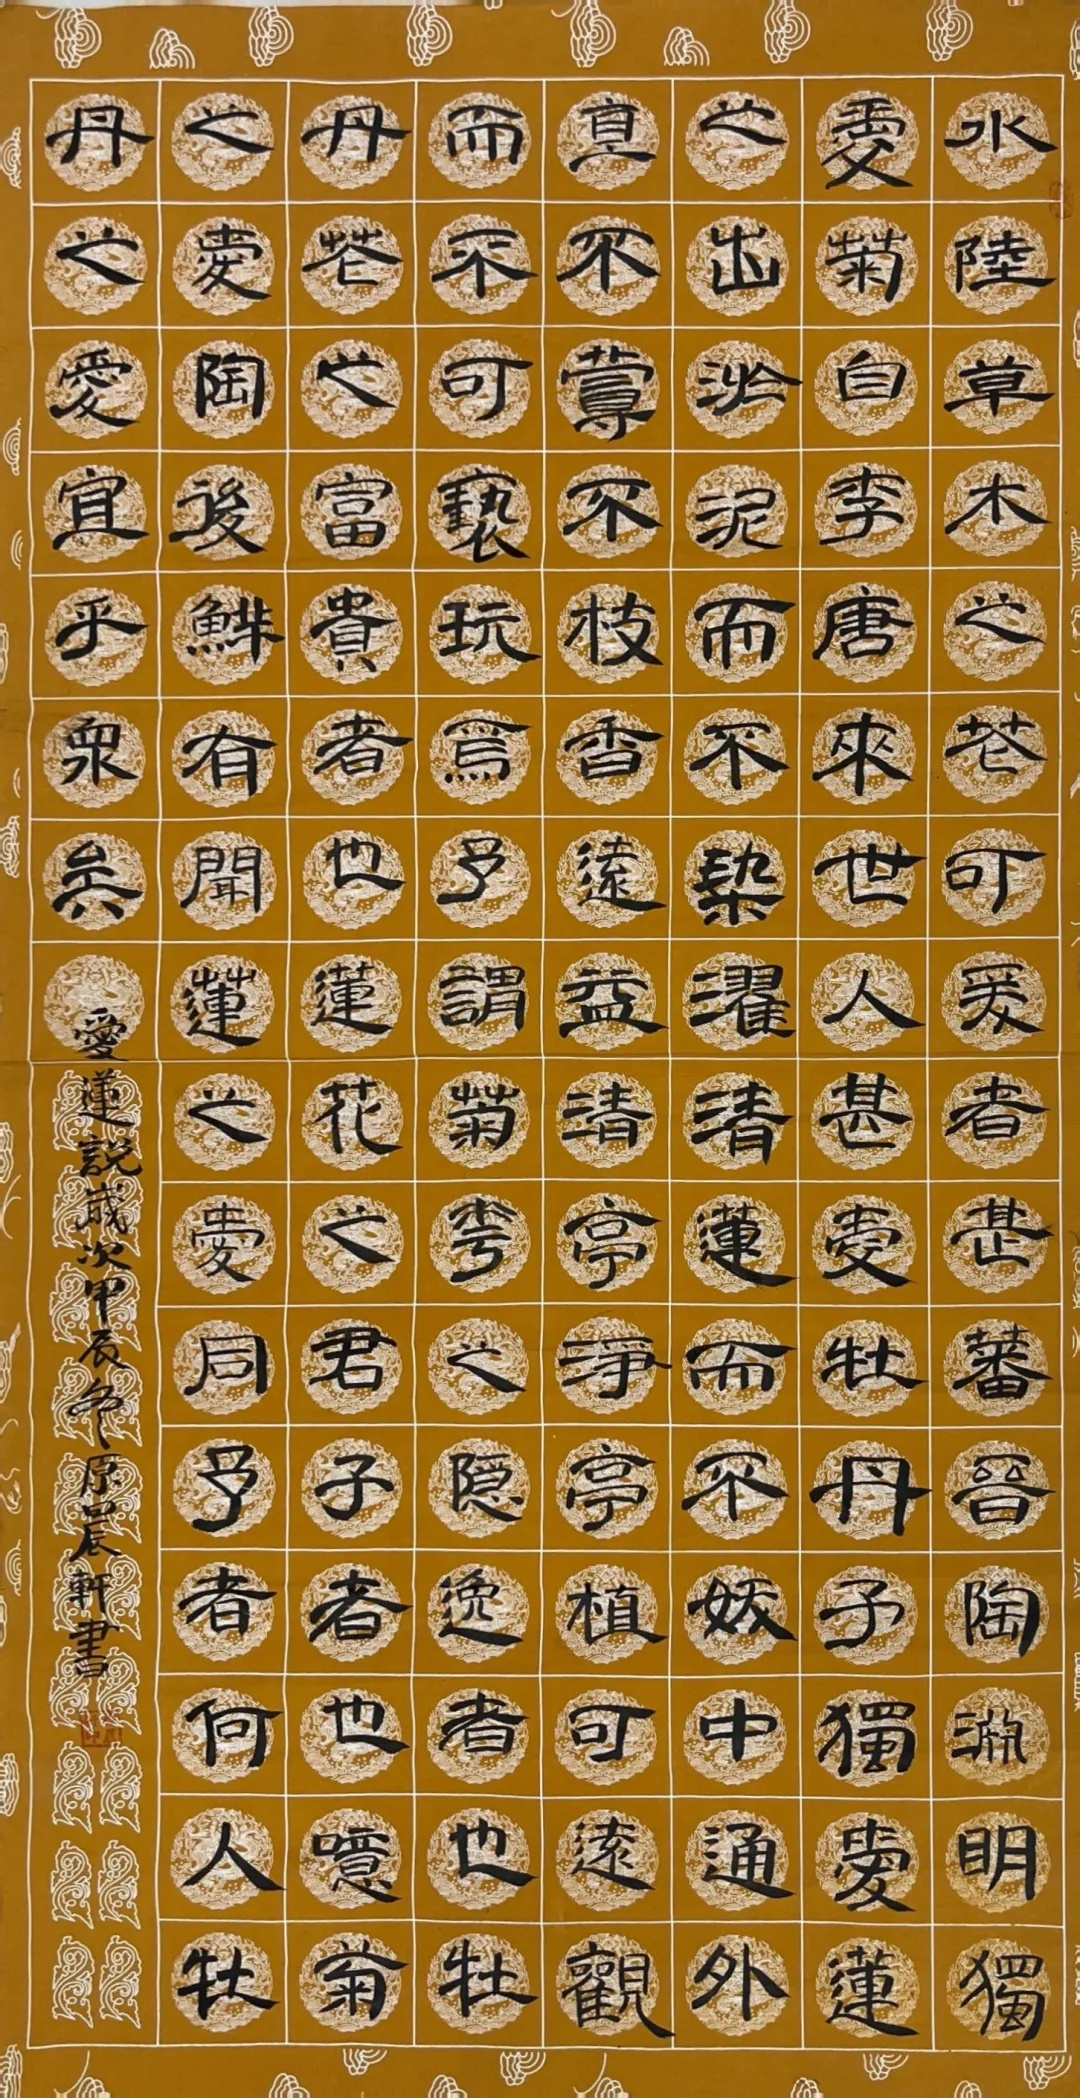 水陸草木之花可爰者甚蕃晉陶渊明獨
愛菊自李唐來世人甚愛牡丹予獨愛蓮
之出淤泥而不染濯清蓮而不妖中通外
直不蔓不枝香遠益清亭淨亭植可遠觀
而不可褻玩焉予謂菊華之隱逸者也牡
丹花之富貴者也蓮花之君子者也噫菊
之愛陶後鮮有聞蓮之愛同予者何人牡
丹之愛宜乎眾矣
愛蓮説歲次甲辰冬原晨軒書